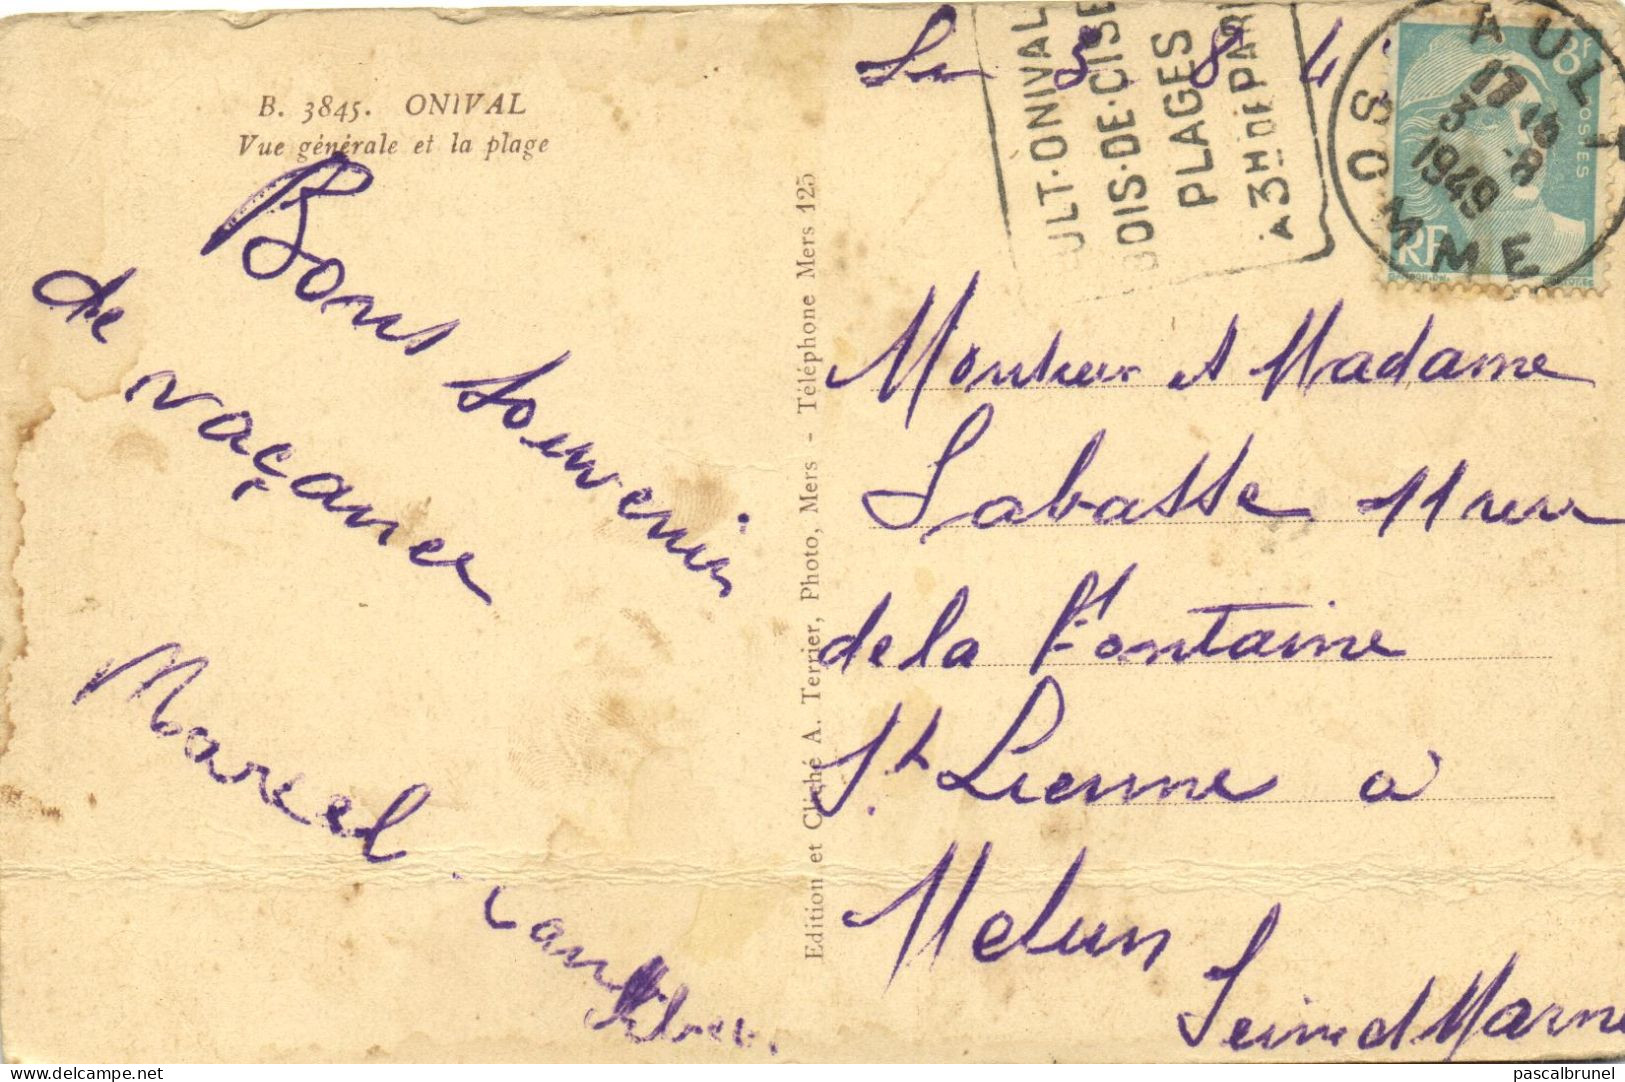 B. 3845. ONIVAL
Vue générale et la plage
Bons Souvenir
de vaçance
Marcel
Edition et Cliché A. Terrier, Photo, Mers - Téléphone Mers 125
ULT-ONIVAL
BOIS-DE-CISE
PLAGES
A 3H DE PARI
AULT
17 15
3 8
1949
SOMME
8F
POSTES
RF
Le 3 8 4
Monsieur et Madame
Labasse 11 rue
de la Fontaine
St Lienne a
Melun
Seine et Marne
pascalbrunel